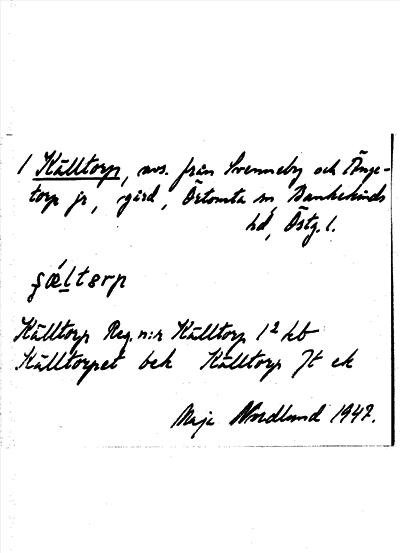 1 Källtorp, avs. från Svenneby och Änge-
torp jr, gård, Örtomta sn Bankekinds
hd, Östg. l.
ʂǽltɵrp
Källtorp Reg. n:r Källtorp 1² kb
Källtorpet bek Källtorp Jt ek
Maja Nordlund 1947.